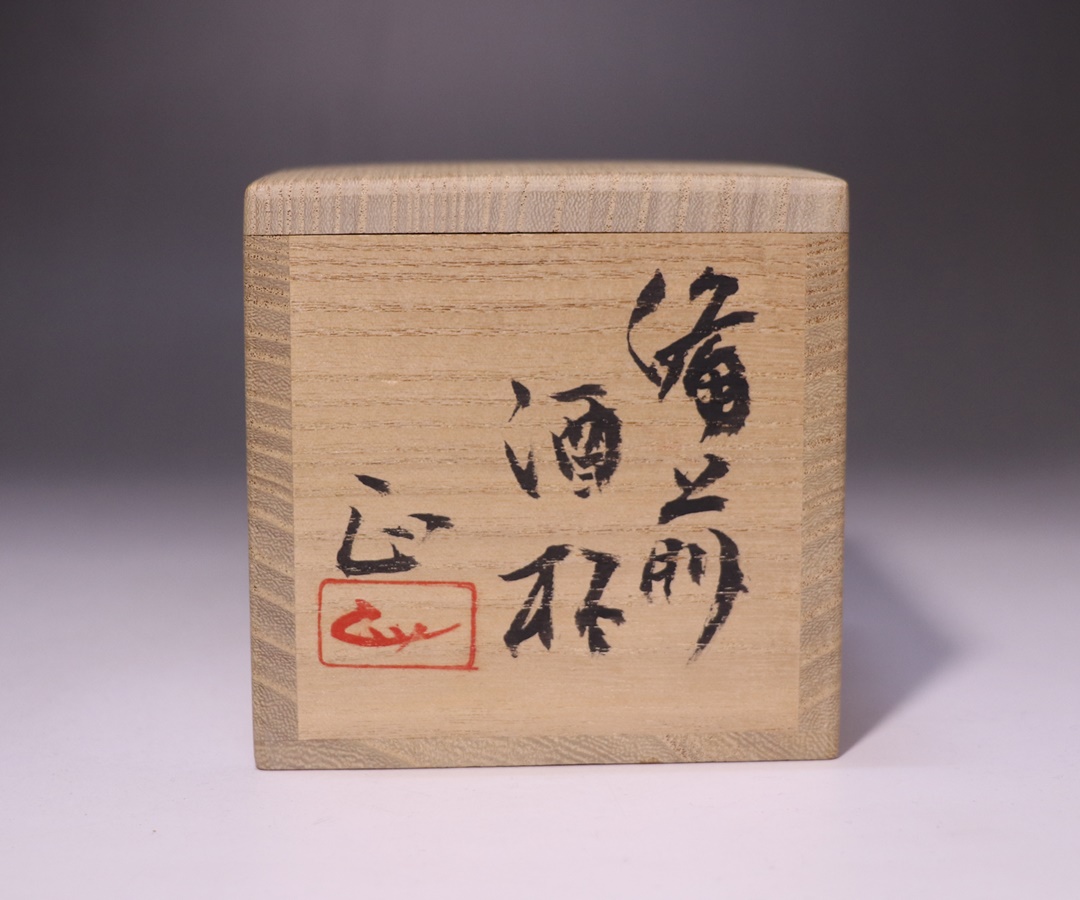 備前
酒杯
正